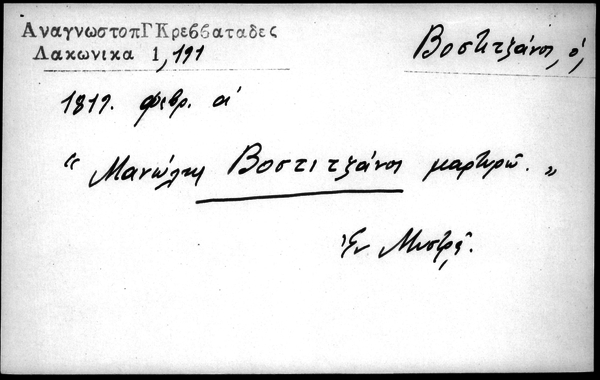 ΑναγνωστοπΓΚρεββαταδες
Λακωνικα 1,191
Βοστιτζάνοι, ὁ,
1819. φεβρ. α'
“ Μανώλης Βοστιτζάνοι μαρτυρῶ. „
Ἐν Μυστρᾷ.